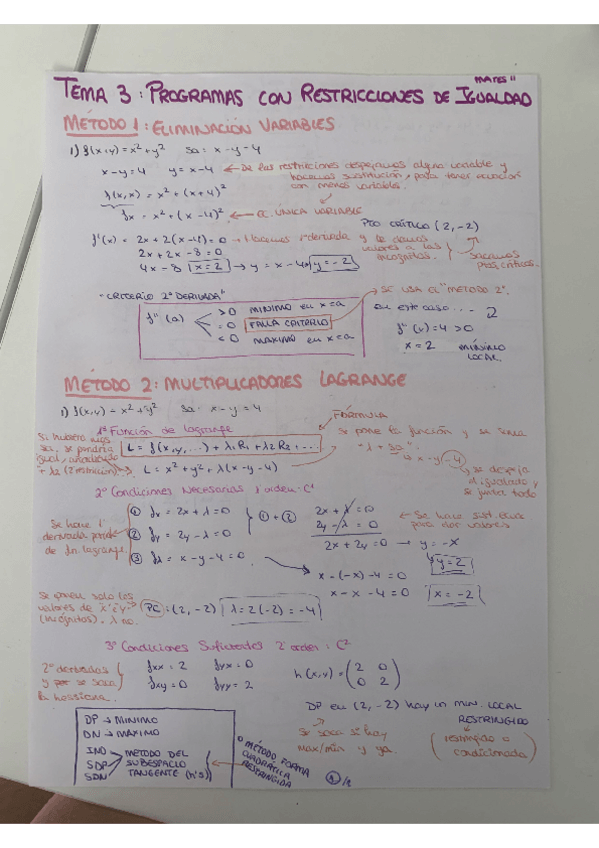 MATES II
TEMA 3: PROGRAMAS CON RESTRICCIONES DE IGUALDAD
MÉTODO 1: ELIMINACIÓN VARIABLES
1) f(x,y) = x² + y² sa: x - y = 4
x - y = 4 y = x - 4 ← De las restricciones despejamos alguna variable y
hacemos sustitución, para tener ecuación
con menos variables.
f(x,x) = x² + (x + 4)²
fx = x² + (x - 4)² ← EC. ÚNICA VARIABLE
PTO CRÍTICO (2, -2)
f'(x) = 2x + 2(x - 4) = 0 → Hacemos 1ª derivada y le damos
valores a las
incógnitas.
sacamos
ptos. críticos.
2x + 2x - 8 = 0
4x - 8 x = 2 → y = x - 4 → y = -2
"CRITERIO 2ª DERIVADA"
→ SE USA EL "MÉTODO 2".
f''(a) > 0 MINIMO en x = a
= 0 FALLA CRITERIO
< 0 MAXIMO en x = a
en este caso... 2
f''(x) = 4 > 0
x = 2 mínimo
LOCAL.
MÉTODO 2: MULTIPLICADORES LAGRANGE
1) f(x,y) = x² + y² sa: x - y = 4
1º Función de Lagrange
FÓRMULA
L = f(x, y, ...) + λ1 R1 + λ2 R2 + ...
Si hubiera más
sa, se pondría
igual, añadiendo
+ λ2 (2ª restricción)
L = x² + y² + λ(x - y - 4)
Se pone la función y se suma
"λ + sa".
x - y - 4
→ se despeja
el igualado y
se junta todo
2º Condiciones Necesarias 1º orden: C¹
Se hace 1ª
derivada parcial
de fn. lagrange.
① fx = 2x + λ = 0
② fy = 2y - λ = 0
③ fλ = x - y - 4 = 0
① + ②
2x + λ = 0
2y - λ = 0
2x + 2y = 0 → y = -x
← Se hace sust.
para dar valores
y = 2
x - (-x) - 4 = 0
x - x - 4 = 0 x = -2
Se ponen solo los
valores de "x" e "y"
(incógnitas). λ no.
PC: (2, -2) λ = 2(-2) = -4
3º Condiciones Suficientes 2º orden: C²
2ª derivadas
y por se saca
la hessiana.
fxx = 2 fyx = 0
fxy = 0 fyy = 2
h(x,y) = (2 0
0 2)
DP en (2, -2) hay un min. LOCAL
RESTRINGIDO
Se saca si hay
max/min y ya.
(restringido o
condicionado)
DP → MINIMO
DN → MAXIMO
IND
SDP
SDN
MÉTODO DEL
SUBESPACIO
TANGENTE (h's)
○ MÉTODO FORMA
CUADRÁTICA
RESTRINGIDA